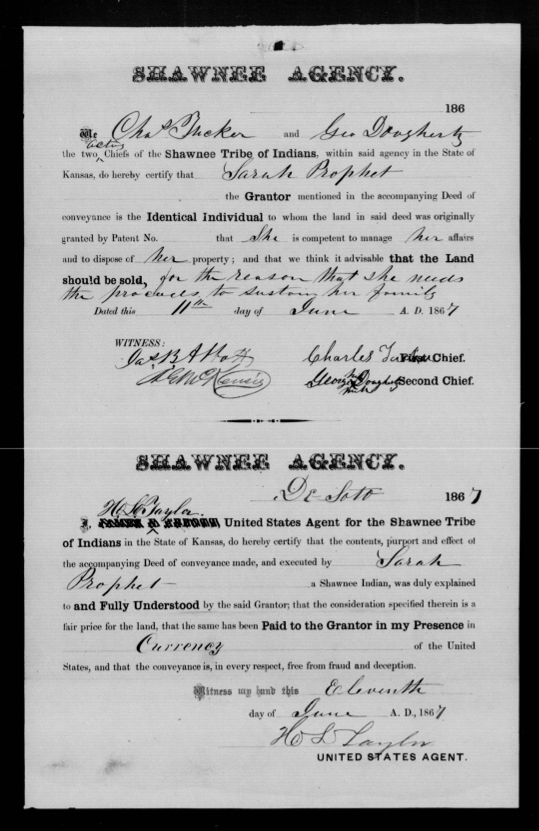 SHAWNEE AGENCY.
186
We Chas Tucker and Geo Dougherty
acting
the two Chiefs of the Shawnee Tribe of Indians, within said agency in the State of
Kansas, do hereby certify that Sarah Prophet
the Grantor mentioned in the accompanying Deed of
conveyance is the Identical Individual to whom the land in said deed was originally
granted by Patent No. that She is competent to manage her affairs
and to dispose of her property; and that we think it advisable that the Land
should be sold, for the reason that she needs
the proceeds to sustain her family
Dated this 11th day of June A. D. 1867
WITNESS:
Jas B Abbott Charles Tucker First Chief.
George Dougherty Second Chief.
SHAWNEE AGENCY.
De Soto 1867
H L Taylor
I, United States Agent for the Shawnee Tribe
of Indians in the State of Kansas, do hereby certify that the contents, purport and effect of
the accompanying Deed of conveyance made, and executed by Sarah
Prophet a Shawnee Indian, was duly explained
to and Fully Understood by the said Grantor; that the consideration specified therein is a
fair price for the land, that the same has been Paid to the Grantor in my Presence in
Currency of the United
States, and that the conveyance is, in every respect, free from fraud and deception.
Witness my hand this Eleventh
day of June A. D., 1867
H L Taylor
UNITED STATES AGENT.